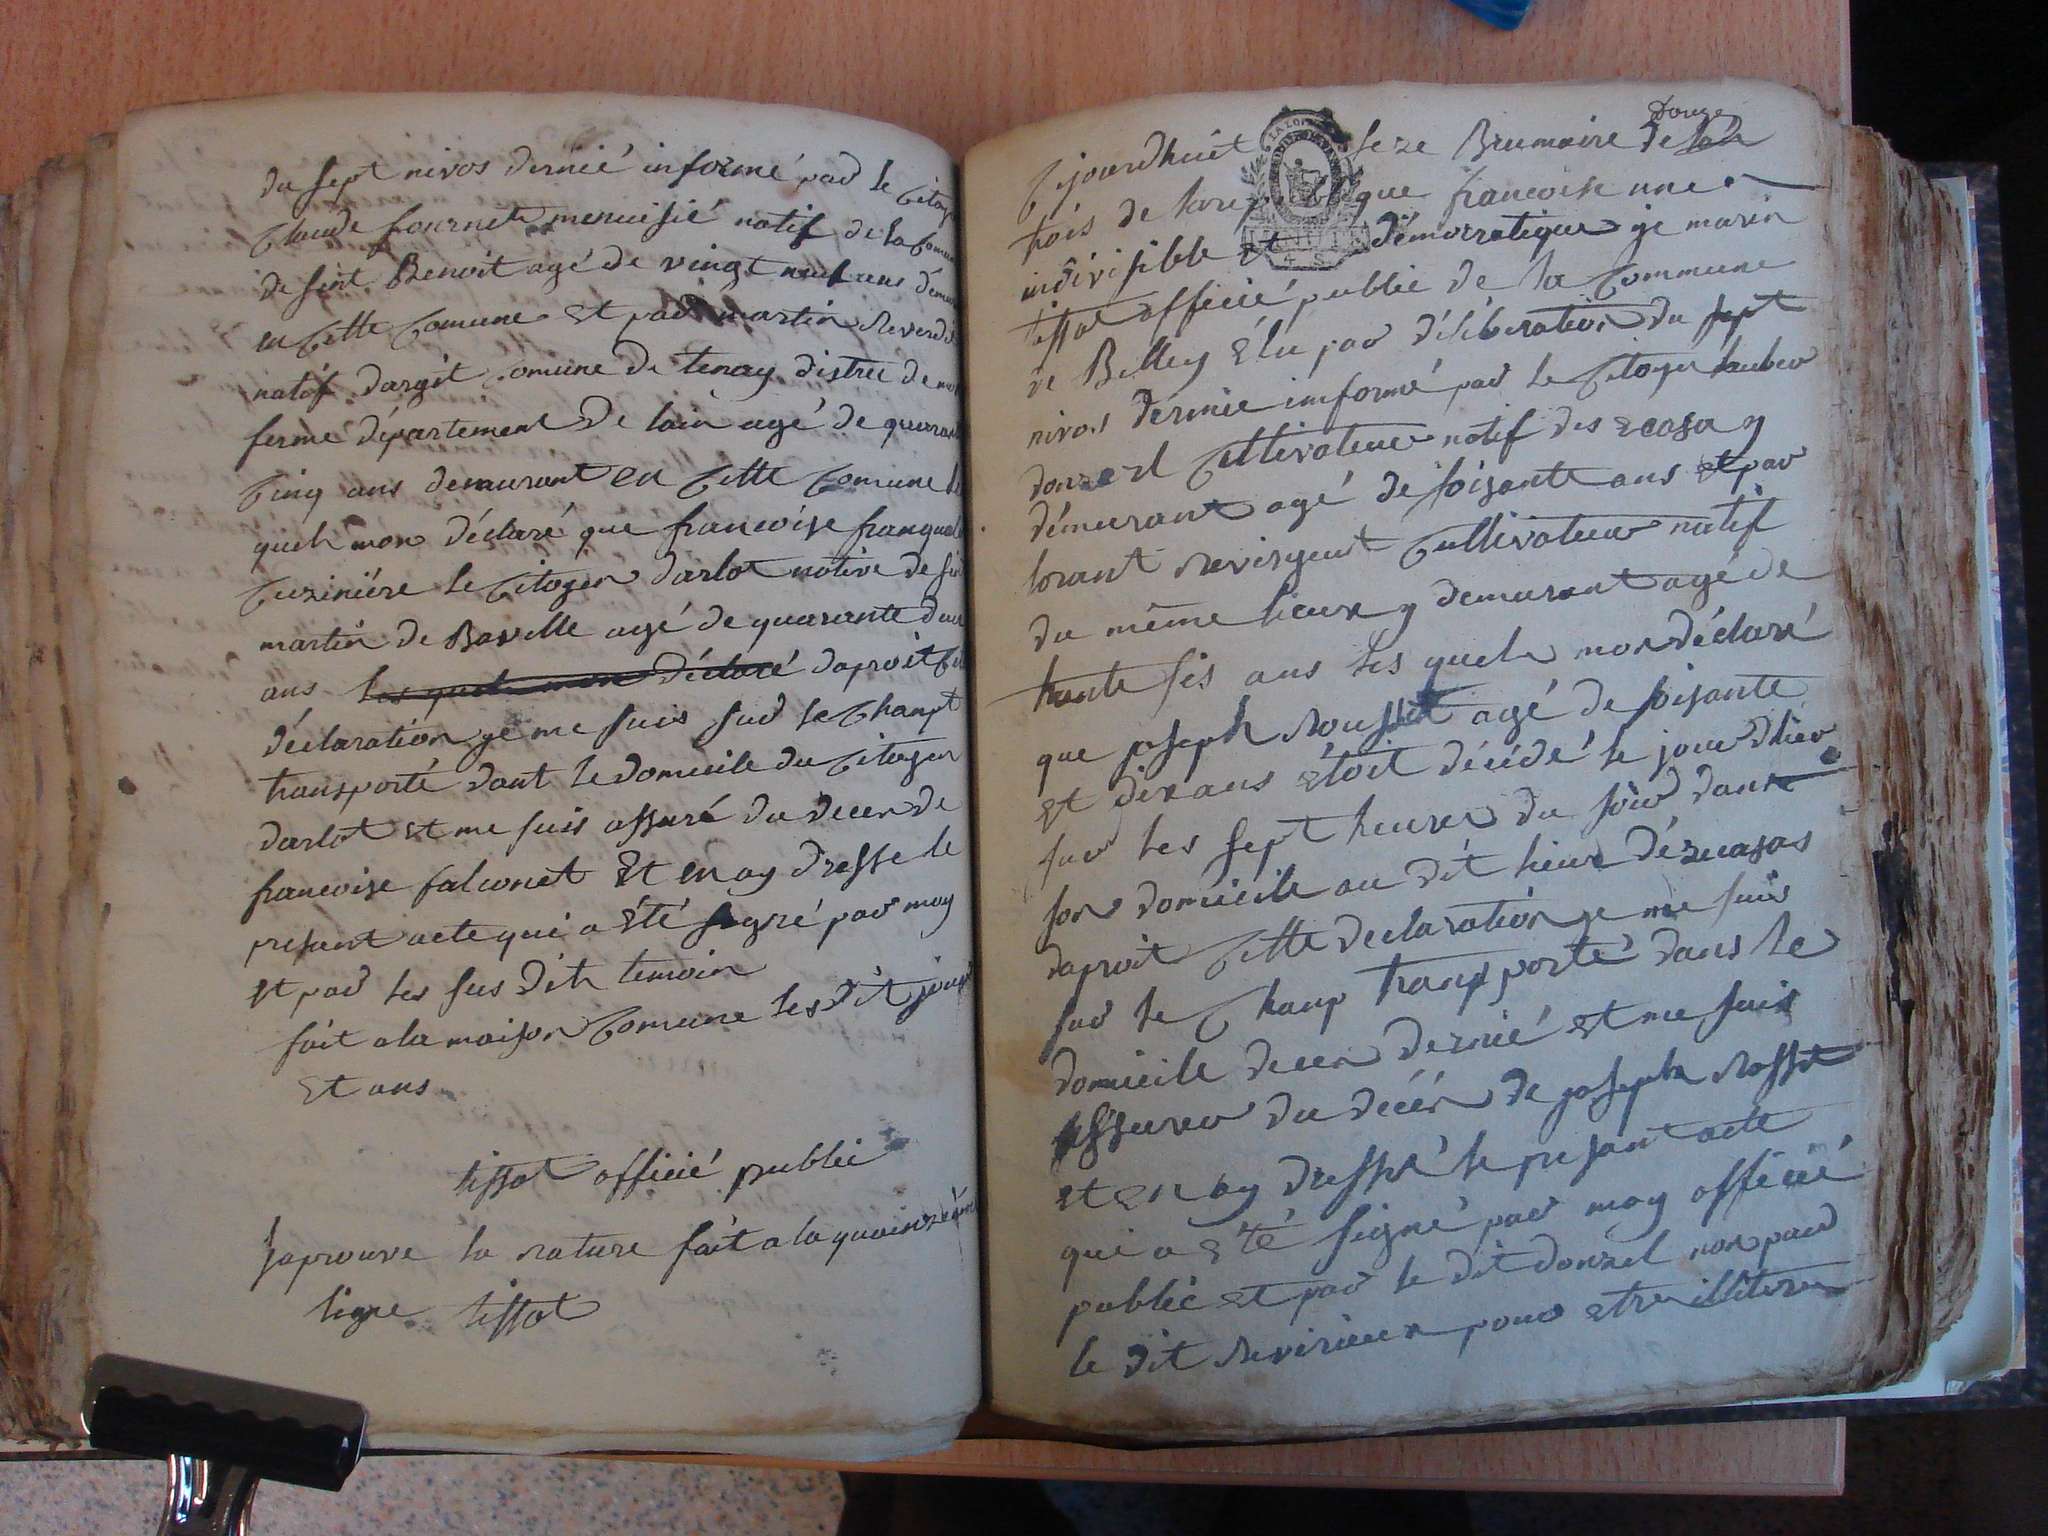 du sept nivos dernié informé par le Citoy
Claude fournet menuisié natif de la Comun
de sint Benoit agé de vingt neuf ans démur
en Cette Comune et par martin Reverdi
natif dargit Comune de tenay distric de mon
ferme département de lain agé de quarante
Cinq ans demeurant en Cette Comune les
quels mon déclaré que francoise franquet
Cuziniére le Citoyen darlot native de sin
martin de Bavelle agé de quarante deux
ans les quels mon déclaré daproit Cet
déclaration je me suis sur le Chanpt
transporté dant le domicile du Citoyen
darlot et me suis assuré du decen de
francoise falconet et en ay dresse le
presant acte qui a été signé par moy
et par les sus dits temoin
fait a la maison Comune les dit jour
et ans
tissot officié public
japrouve la rature fait a la quainziém
ligne tissot
Douze
Cejourdhuit seze Brumaire de lan
trois de la republique francoise une
indivisible et démocratique je marin
tissot officié public de la Commune
de Billey élu par délibération du sept
nivos dérnié informé par le Citoyen
donzel Cultivateur natif des ecasa y
démurant agé de soisante ans et par
lorant Cultivateur natif
du même lieux y demurant agé de
trante sis ans les quels mon déclaré
que joseph Rousset agé de soisante
et dix ans étoit décédé le jour dhier
sur les sept heures du soir dans
son domicile au dit lieux dézecasas
daproit Cette declaration je me suis
sur le Chanp transporté dans le
domicile decen dernié et me suis
assurer du décés de joseph Rosset
et en ay dressé le presant acte
qui a été signé par moy officié
public et par le dit donzel non par
le dit Revirieux pour etre illiteré